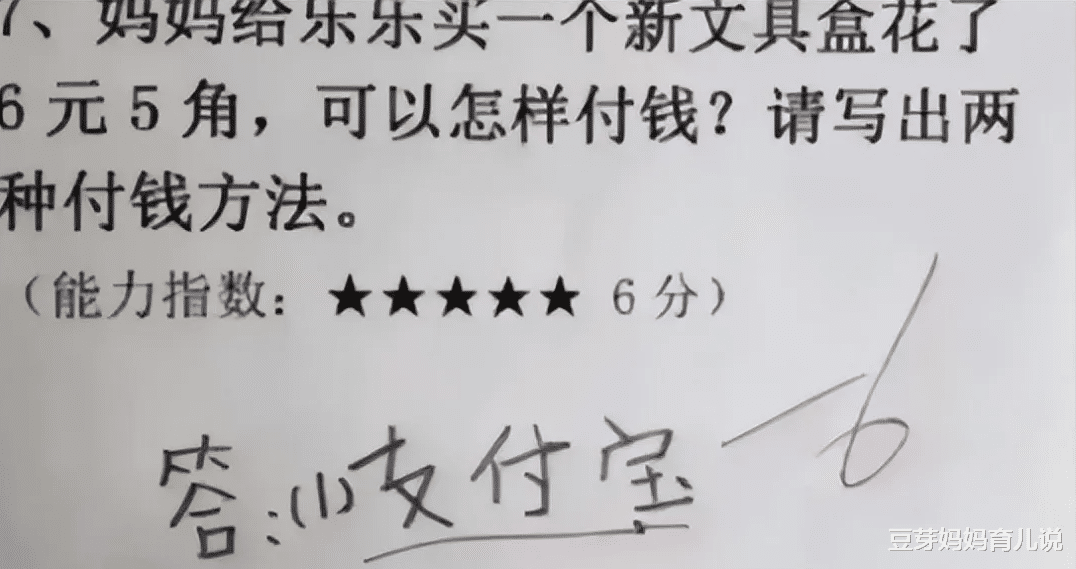 7、妈妈给乐乐买一个新文具盒花了
6元5角，可以怎样付钱？请写出两
种付钱方法。
（能力指数：★★★★★ 6分）
答:(1)支付宝 -6
豆芽妈妈育儿说